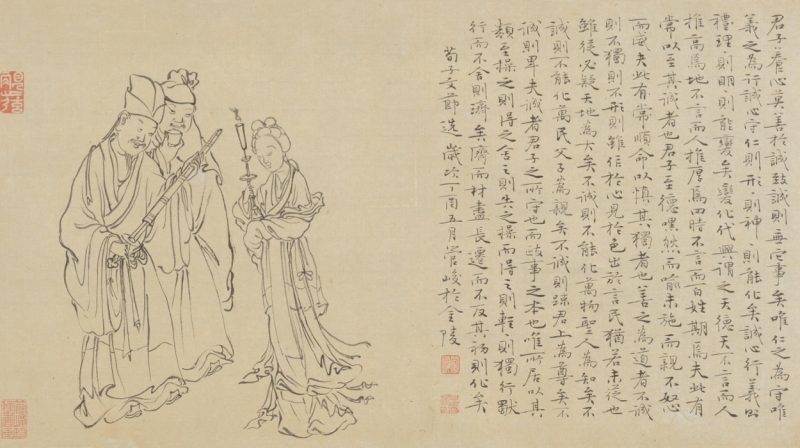 君子養心莫善於誠致誠則無它事矣唯仁之為守唯
義之為行誠心守仁則形、則神、則能化矣誠心行義則
禮理、則明明則能變矣變化代興謂之天德天不言而人
推高焉地不言而人推厚焉四時不言而百姓期焉夫此有
常以至其誠者也君子至德嘿然而喻未施而親不怒
而威夫此有常順命以慎其獨者也善之為道者不誠
則不獨則不形則雖作於心見於色出於言民猶若未從也
雖從必疑天地為大矣不誠則不能化萬物聖人為知矣不
誠則不能化萬民父子為親矣不誠則疎君上為尊矣不
誠則卑夫誠者君子之所守也而政事之本也唯所居以其
類至操之則得之舍之則失之操而得之則輕、則獨行獨
行而不舍則濟矣濟而材盡長遷而不反其初則化矣
荀子文節選 歲次丁酉五月管峻於金陵